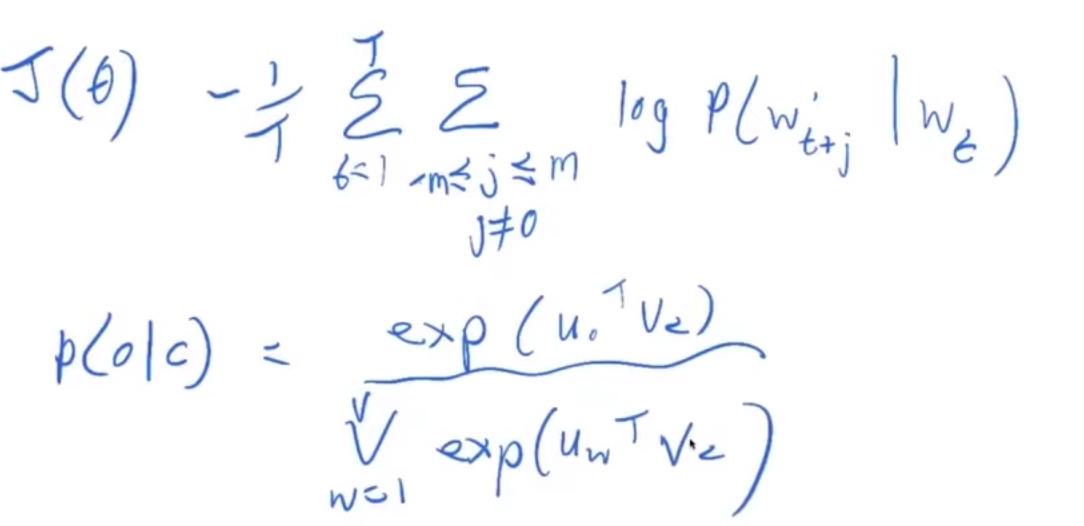 J(θ) -1/T T Σ t=1 Σ -m≤j≤m j≠0 log P(w't+j | wt)
p(o|c) = exp(uoT vc) / V Σ w=1 exp(uwT vc)